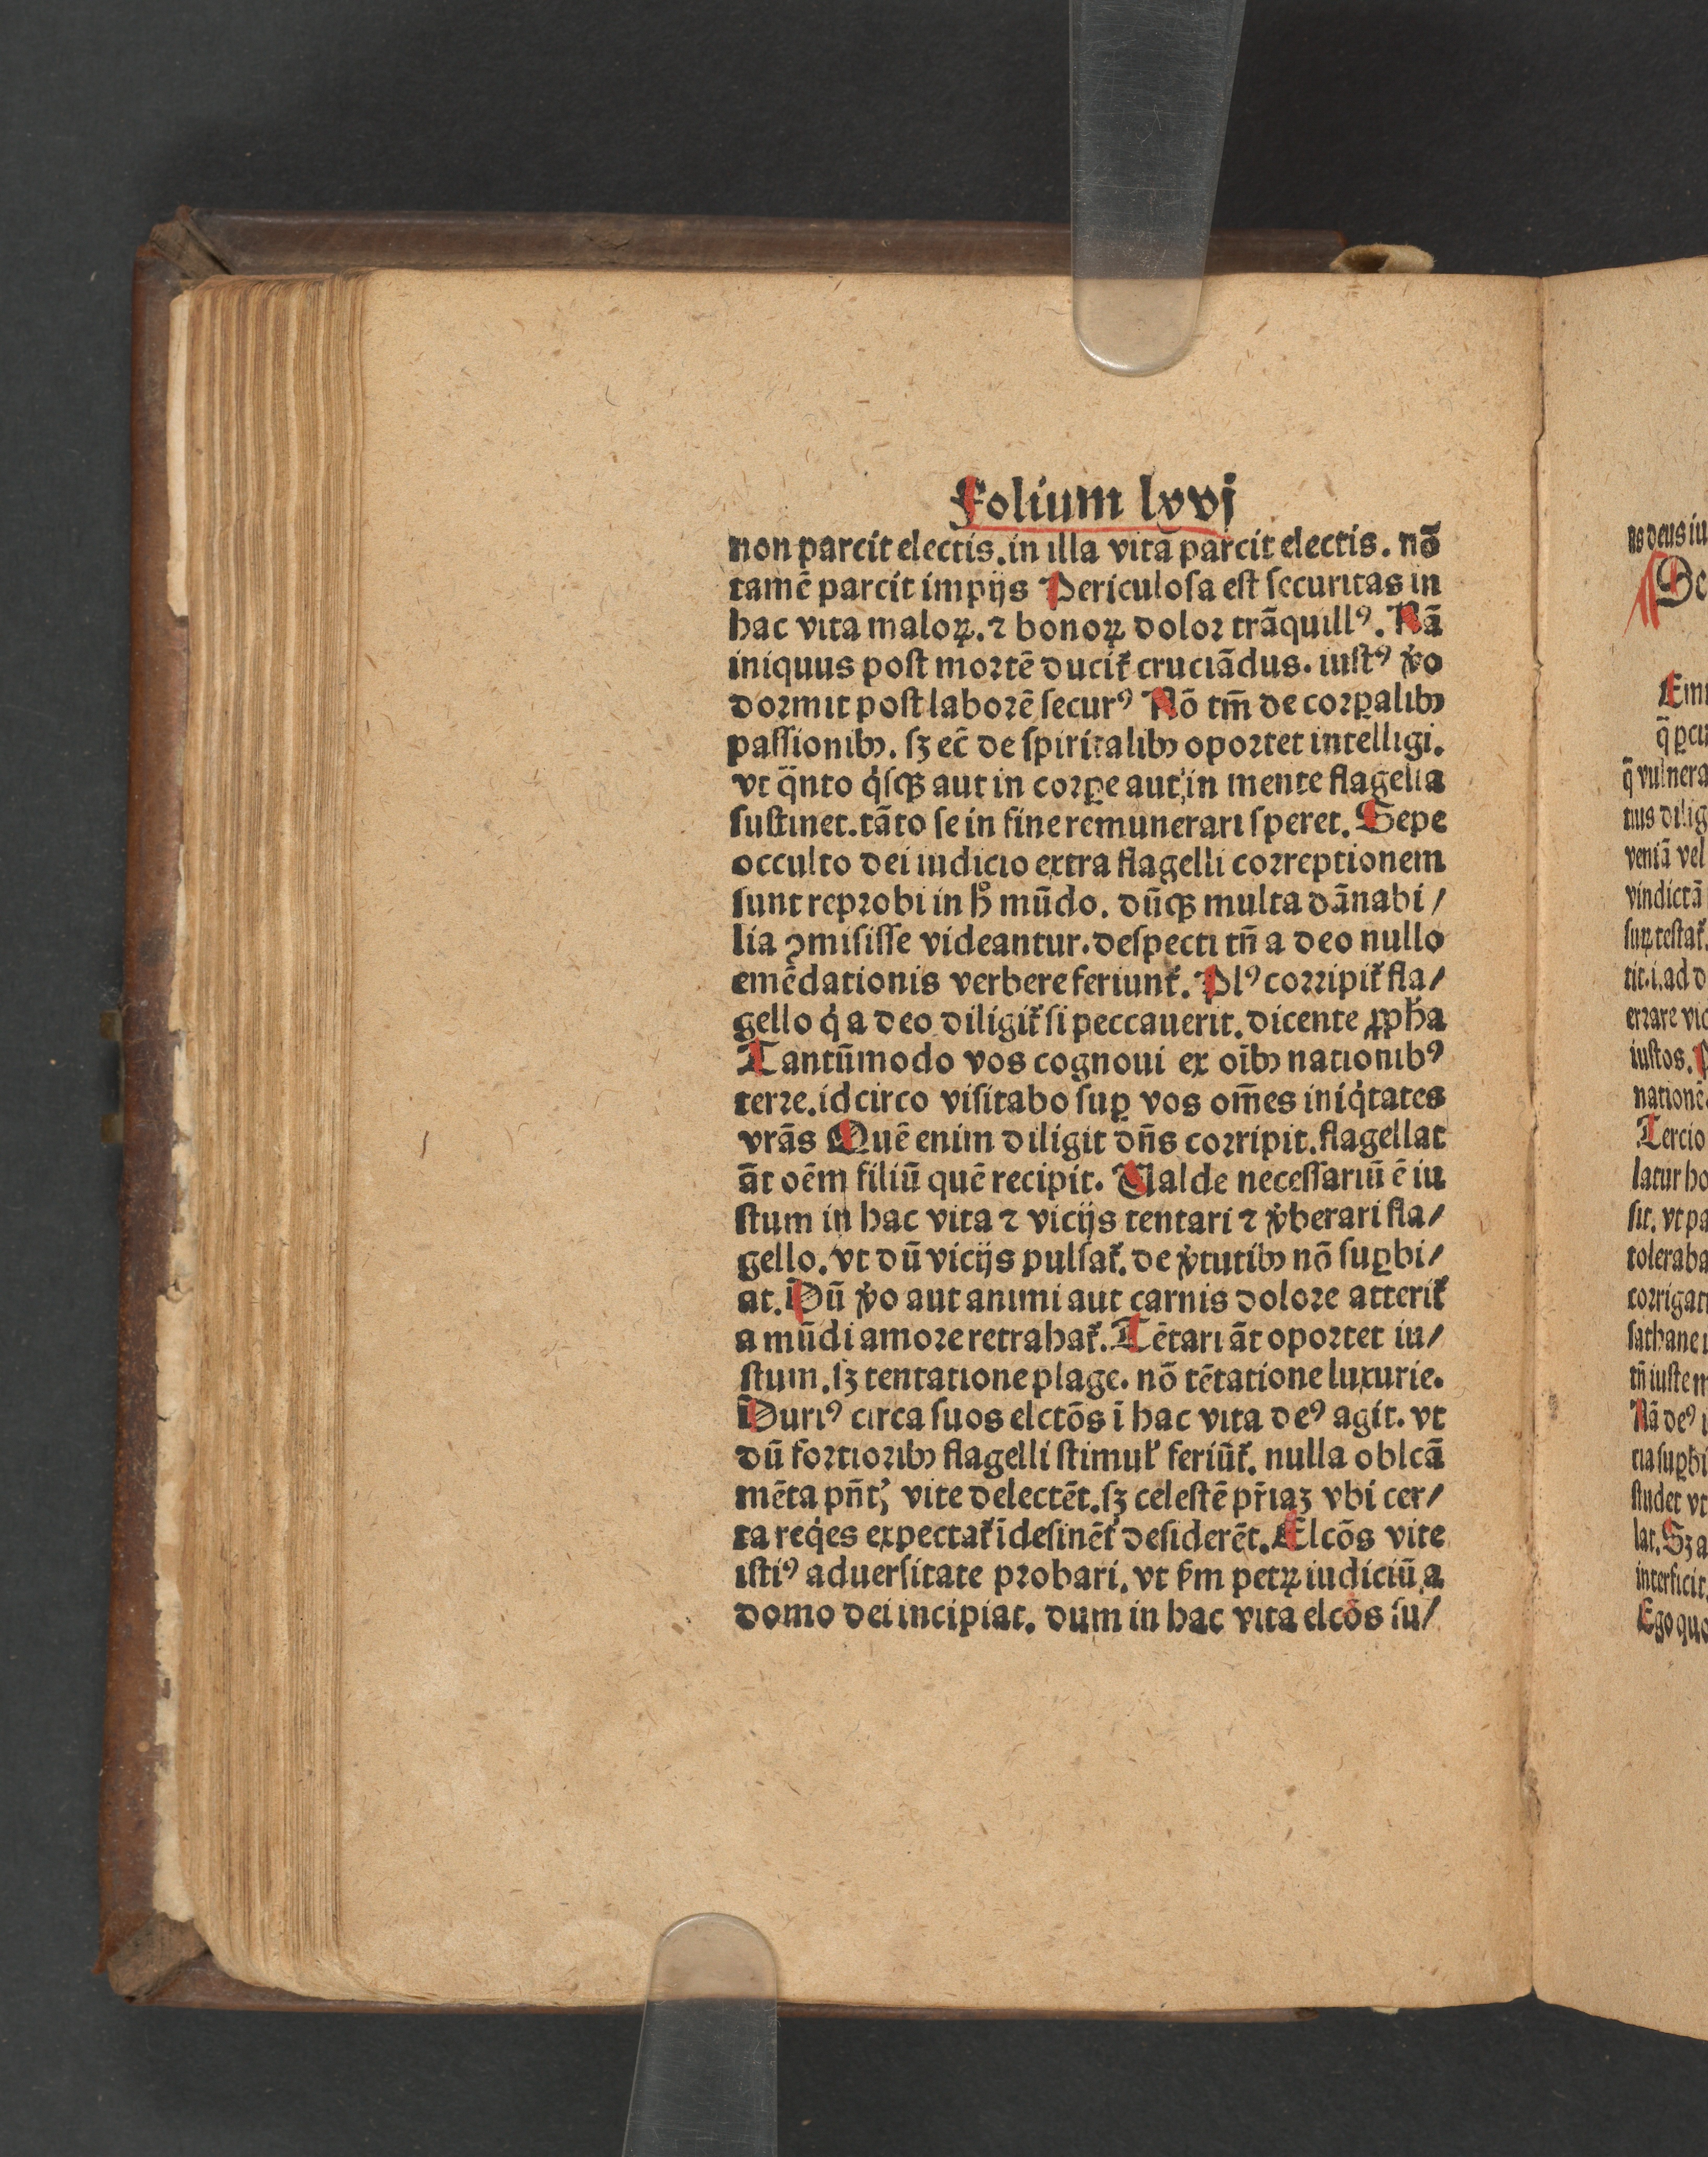 Folium lxvj
non parcit electis. in illa vita parcit electis. nō
tamē parcit impijs Periculoſa eſt ſecuritas in
hac vita maloꝝ. ⁊ bonoꝝ doloꝛ trāquillꝰ. Nā
iniquus poſt moꝛtē ducit᷑ cruciādus. iuſtꝰ v̓o
doꝛmit poſt laboꝛē ſecurꝰ Nō tm̄ de coꝛꝑalibꝫ
paſſionibꝫ. ſꝫ ec̄ de ſpiritalibꝫ opoꝛtet intelligi.
vt q̄nto q̇ſqꝫ aut in coꝛꝑe aut in mente flagella
ſuſtinet. tāto ſe in fine remunerari ſperet. Sepe
occulto dei iudicio extra flagelli coꝛreptionem
ſunt repꝛobi in hͦ mūdo. dūqꝫ multa dānabi /
lia ꝯmiſiſſe videantur. deſpecti tn̄ a deo nullo
emēdationis verbere feriunt᷑. Plꝰ coꝛripit᷑ fla/
gello q̇ a deo diligit᷑ ſi peccauerit. dicente ꝓpha
Tantūmodo vos cognoui ex oībꝫ nationibꝰ
terre. idcirco viſitabo ſuꝑ vos om̄es iniq̇tates
vrās Quē enim diligit dn̄s coꝛripit. flagellat
āt oēm filiū quē recipit. Valde neceſſariū ē iu
ſtum in hac vita ⁊ vicijs tentari ⁊ v̓berari fla/
gello. vt dū vicijs pulſat᷑. de v̓tutibꝫ nō ſuꝑbi/
at. Dū v̓o aut animi aut carnis doloꝛe atterit᷑
a mūdi amoꝛe retrahat᷑. Tētari āt opoꝛtet iu/
ſtum. ſꝫ tentatione plage. nō tētatione luxurie.
Duriꝰ circa ſuos elctōs ī hac vita deꝰ agit. vt
dū foꝛtioꝛibꝫ flagelli ſtimul᷑ feriūt᷑. nulla oblcā
mēta pn̄tꝭ vite delectēt. ſꝫ celeſtē pr̄iaꝫ vbi cer/
ta req̇es expectat᷑ īdeſinēt᷑ deſiderēt. Elcōs vite
iſtiꝰ aduerſitate pꝛobari. vt ẜm petꝝ iudiciū a
domo dei incipiat. dum in hac vita elcōs ſu/